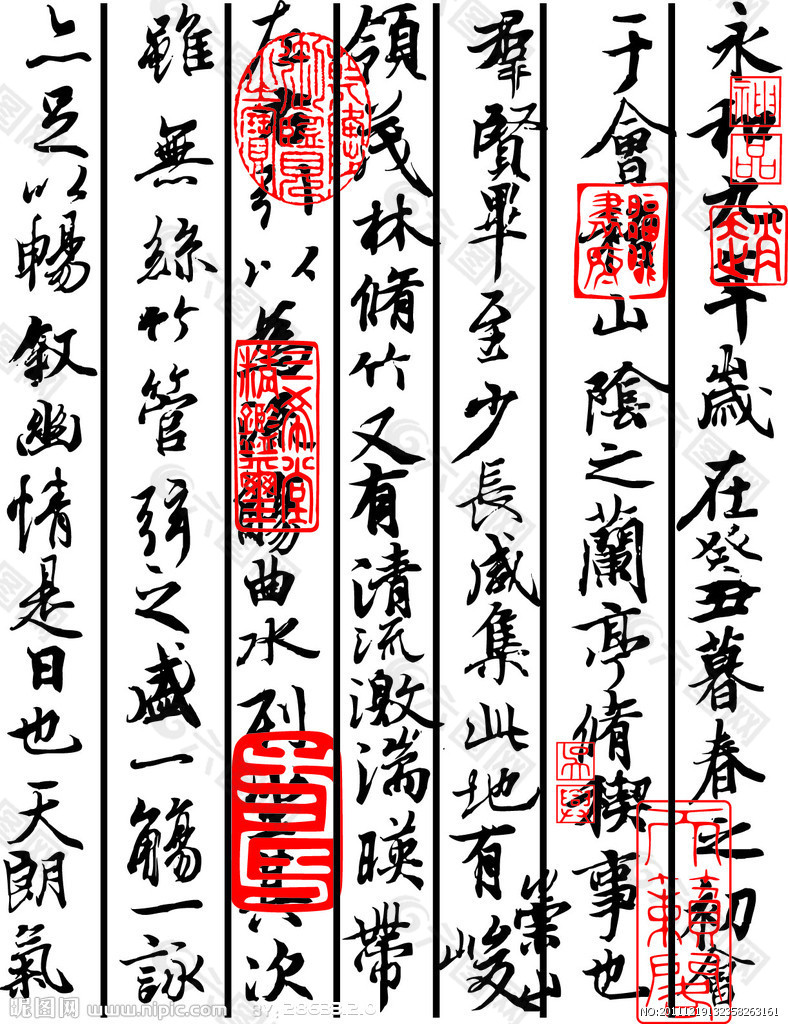 永和九年歲在癸丑暮春之初會
于會稽山陰之蘭亭脩稧事也
羣賢畢至少長咸集此地有峻
領茂林脩竹又有清流激湍暎帶
左右引以為流觴曲水列坐其次
雖無絲竹管弦之盛一觴一詠
亦足以暢敘幽情是日也天朗氣
崇山
三希堂精鑑璽
昵图网 www.nipic.com
NO:20111219132358263161